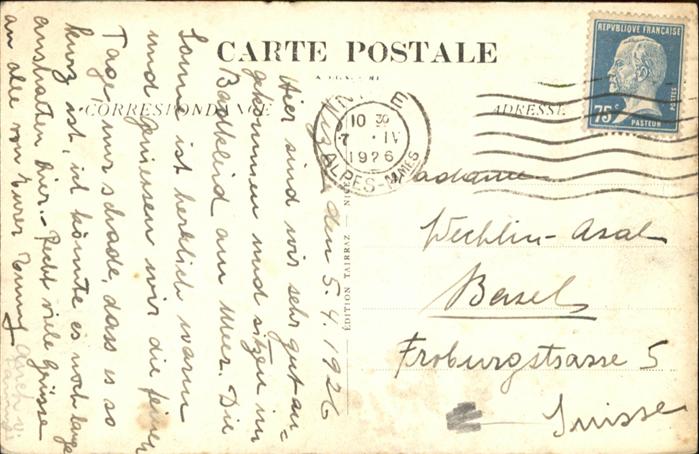 CARTE POSTALE
CORRESPONDANCE
ADRESSE
REPUBLIQUE FRANÇAISE
75c
POSTES
PASTEUR
10 30
7 · IV
1926
ALPES-MMES
EDITION TAIRRAZ — NICE
den 5.4.1926
Hier sind wir sehr gut an-
gekommen und sitzen im
Badkleid am Meer. Die
Sonne ist herrlich warm
und geniessen wir die feinen
Tage, nur schade, dass es so
kurz ist, ich könnte es noch lange
aushalten hier. Recht viele Grüsse
an alle von Eurer
Madame
Wechlin-Asal
Basel
Froburgstrasse 5
Suisse